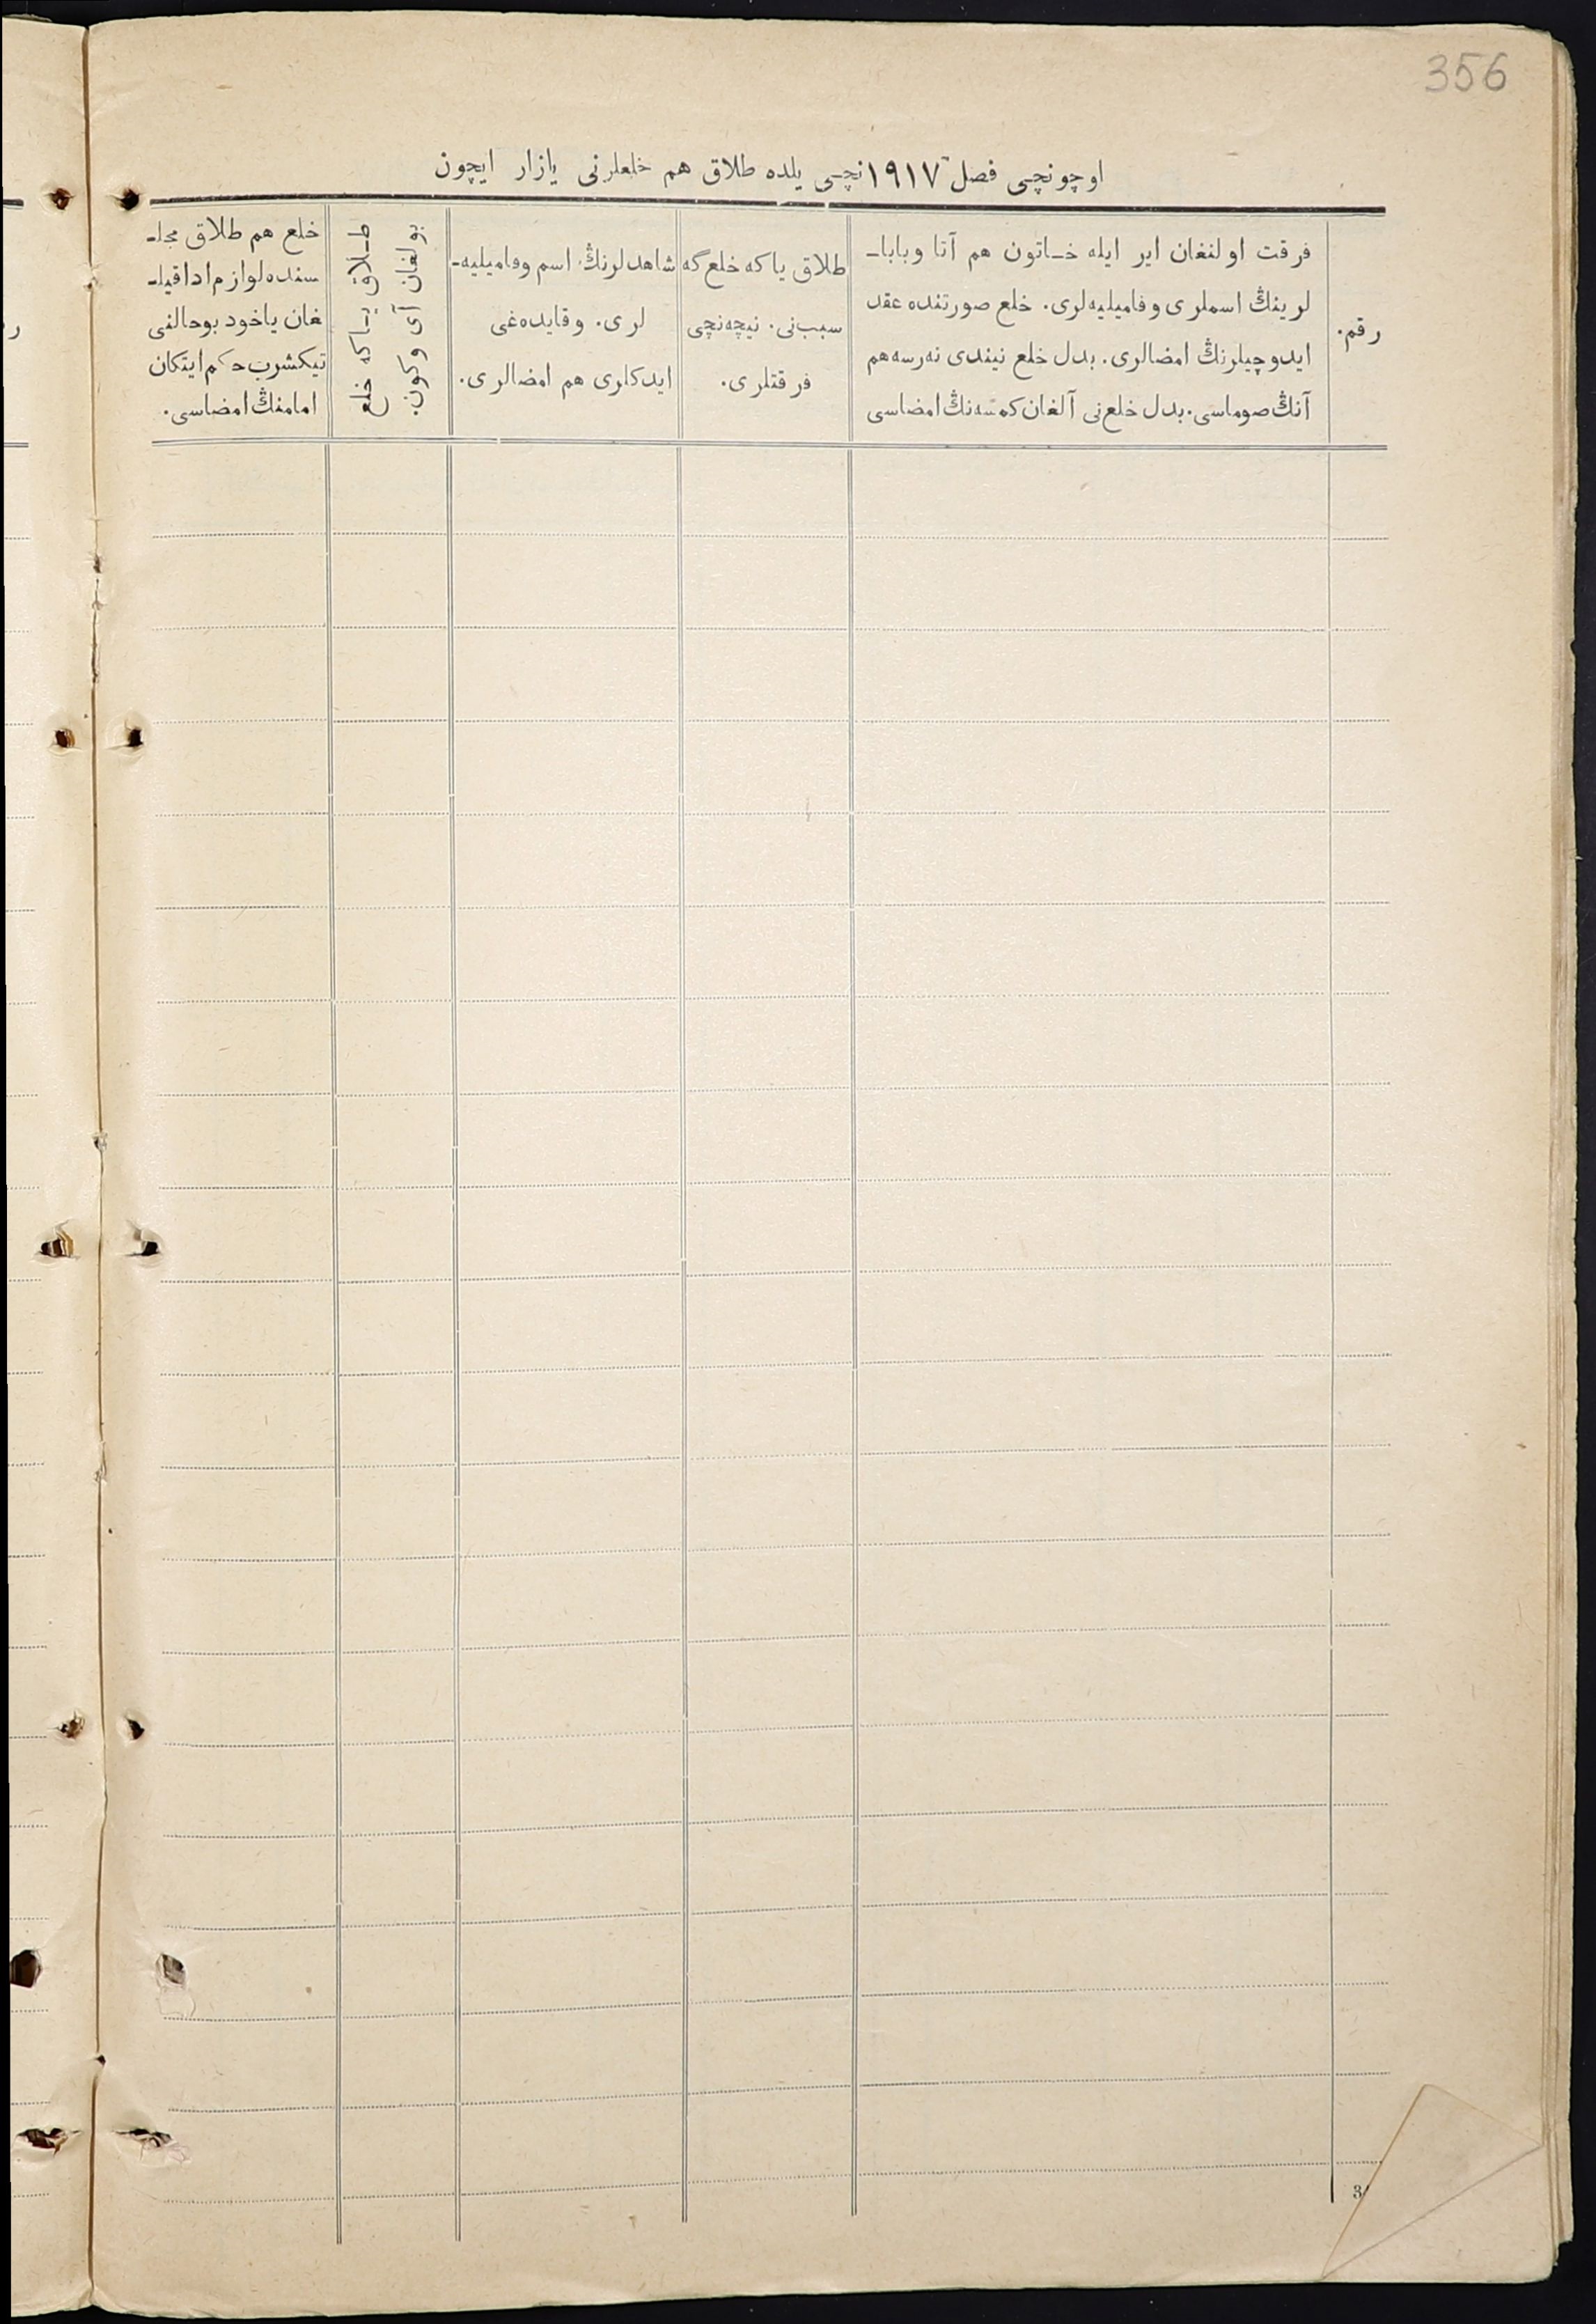 356
اوچونچی فصل ١٩١٧نچی یلده طلاق هم خلعلرنی یازار ایچون
رقم.
فرقت اولنغان ایر ایله خـاتون هم آتا وبابا-
لرینڭ اسملری وفامیلیه‌لری. خلع صورتنده عقد
ایدوچیلرنڭ امضالری. بدل خلع نیندی نه‌رسه هم
آنڭ صوماسی. بدل خلع‌نی آلغان کمسه‌نڭ امضاسی
طلاق یا که خلع گه
سبب‌نی. نیچه‌نچی
فرقتلری.
شاهدلرنڭ اسم وفامیلیه-
لری. وقایده‌غی
ایدکلری هم امضالری.
طـلاق یـا که خلع
بولغان آی وکون.
خلع هم طلاق مجلـ
سنده لوازم ادا قیلـ
غان یاخود بوحالنی
تیکشرب حکم ایتکان
امامنڭ امضاسی.